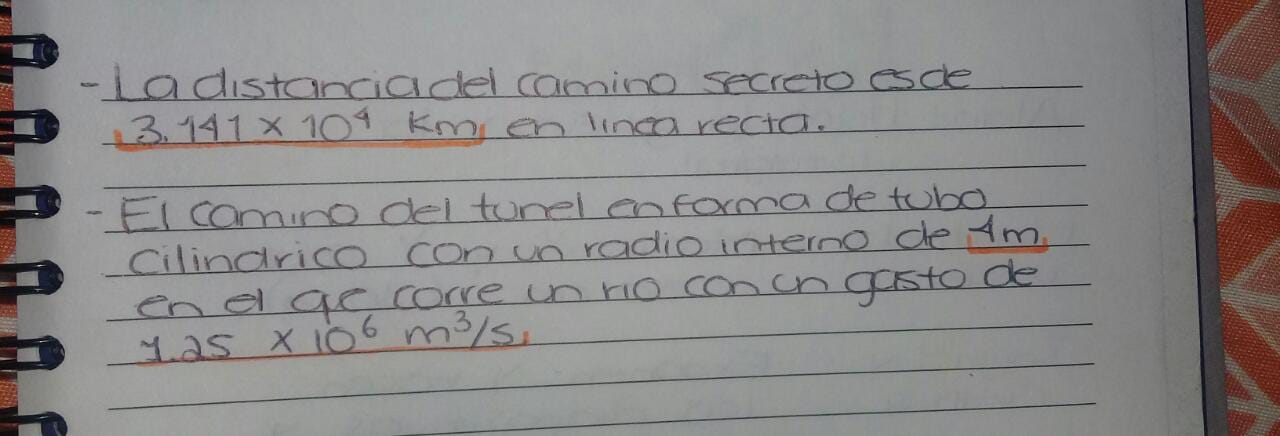 - La distancia del camino secreto es de
3.141 x 10⁴ Km, en linea recta.
- El camino del tunel en forma de tubo
cilindrico con un radio interno de 1m,
en el qe corre un rio con un gasto de
1.25 x 10⁶ m³/s.